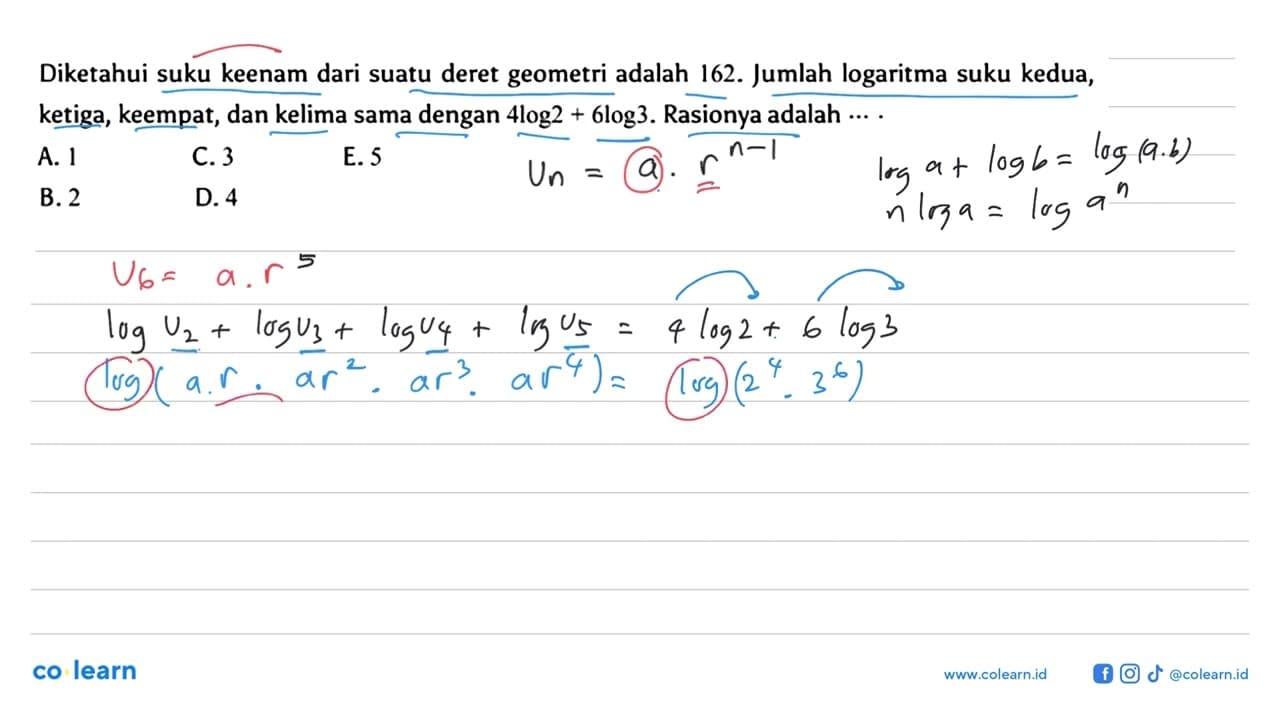 Diketahui suku keenam dari suatu deret geometri adalah 162. Jumlah logaritma suku kedua,
ketiga, keempat, dan kelima sama dengan 4log2 + 6log3. Rasionya adalah ... .
A. 1 C. 3 E. 5
B. 2 D. 4
Un = a . r^(n-1)
log a + log b = log (a.b)
n log a = log a^n
U6 = a . r^5
log U2 + log U3 + log U4 + log U5 = 4 log 2 + 6 log 3
log ( a.r . ar^2 . ar^3 . ar^4 ) = log (2^4 . 3^6)
co learn
www.colearn.id
@colearn.id